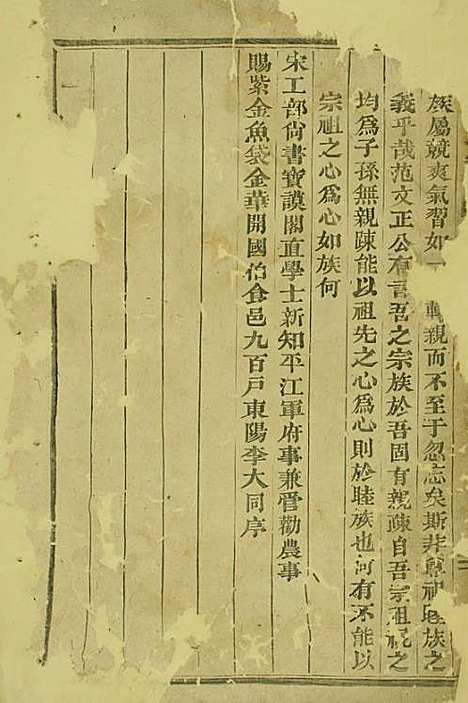 族屬競爽氣習如一 親而不至于忽忘矣斯非尊祖睦族之
義乎哉范文正公有言吾之宗族於吾固有親疎自吾宗祖視之
均為子孫無親疎能以祖先之心為心則於睦族也何有不能以
宗祖之心為心如族何
宋工部尙書寶謨閣直學士新知平江軍府事兼管勸農事
賜紫金魚袋金華開國伯食邑九百戸東陽李大同序